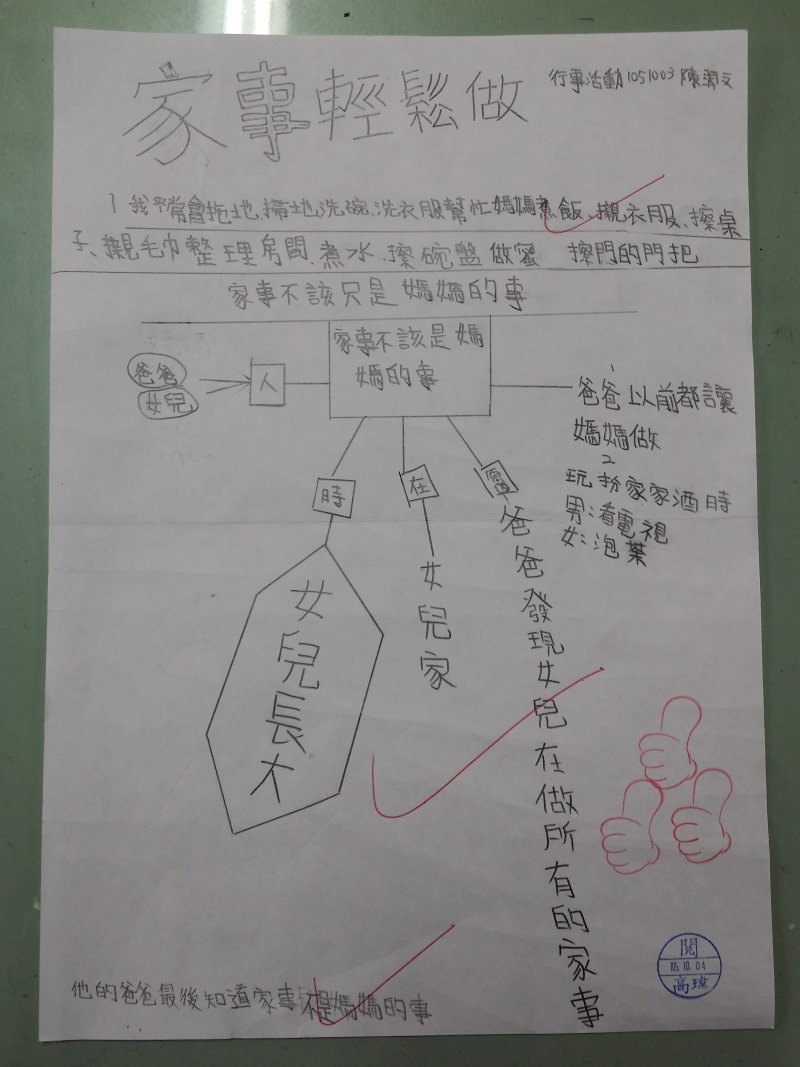 家事輕鬆做
行事活動1051003 陳潤文
1 我平常會拖地、掃地、洗碗、洗衣服幫忙媽媽煮飯、襯衣服、擦桌
子、襯毛巾整理房間、煮水、擦碗盤做蜜 擦門的門把
家事不該只是媽媽的事
家事不該是媽
媽的事
爸爸
女兒
人
1
爸爸以前都讓
媽媽做
2
玩扮家家酒時
男:看電視
女:泡葉
時
女兒長大
在
女兒家
爸爸發現女兒在做所有的家事
他的爸爸最後知道家事不是媽媽的事
閱
105.10.04
高瑋